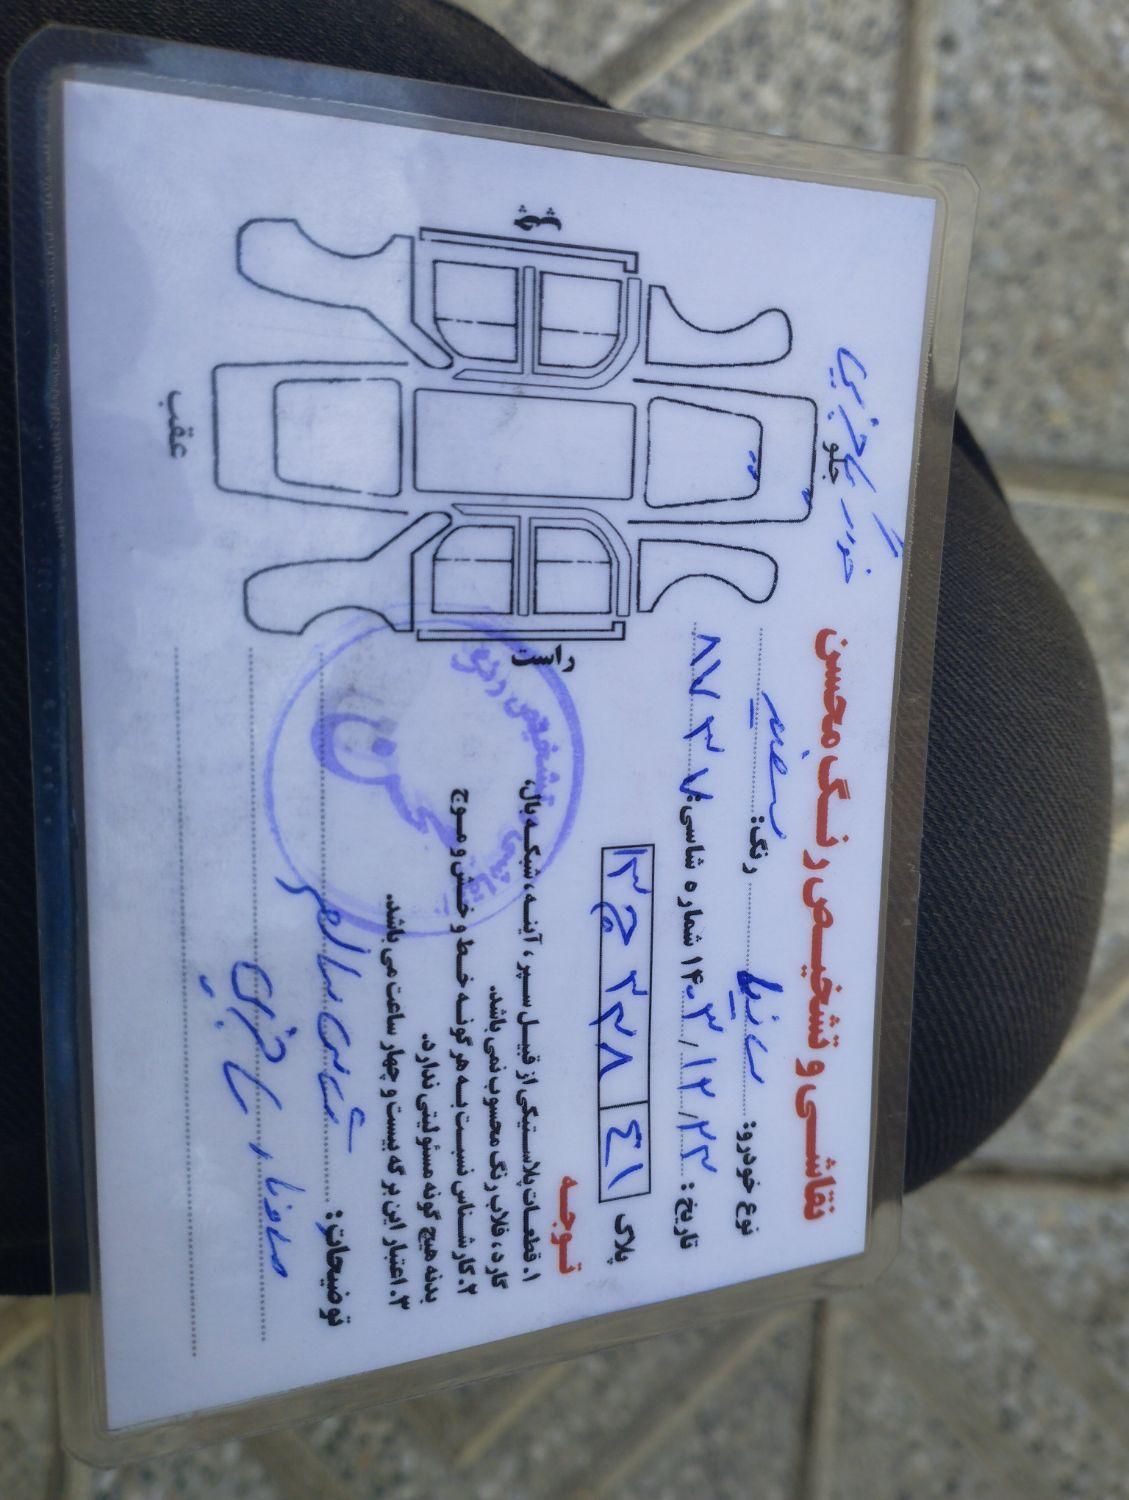 نقاشی و تشخیص رنگ محسن
نوع خودرو: ساینا رنگ: سفید
تاریخ: ۱۴۰۳/۱۲/۲۳ شماره شاسی: ۸۷۳۷
پلاک
۴۱ ۳۳۸ ج ۱۳
توجه
۱. قطعات پلاستیکی از قبیل سپر، آینه، شبکه بال،
گارد، قلاب رنگ محسوب نمی باشد.
۲. کارشناس نسبت به هرگونه خط و خش و موج
بدنه هیچ گونه مسئولیتی ندارد.
۳. اعتبار این برگه بیست و چهار ساعت می باشد.
توضیحات: شاسی سالم
جلو
چپ
راست
عقب
تشخیص رنگ
نقاشی